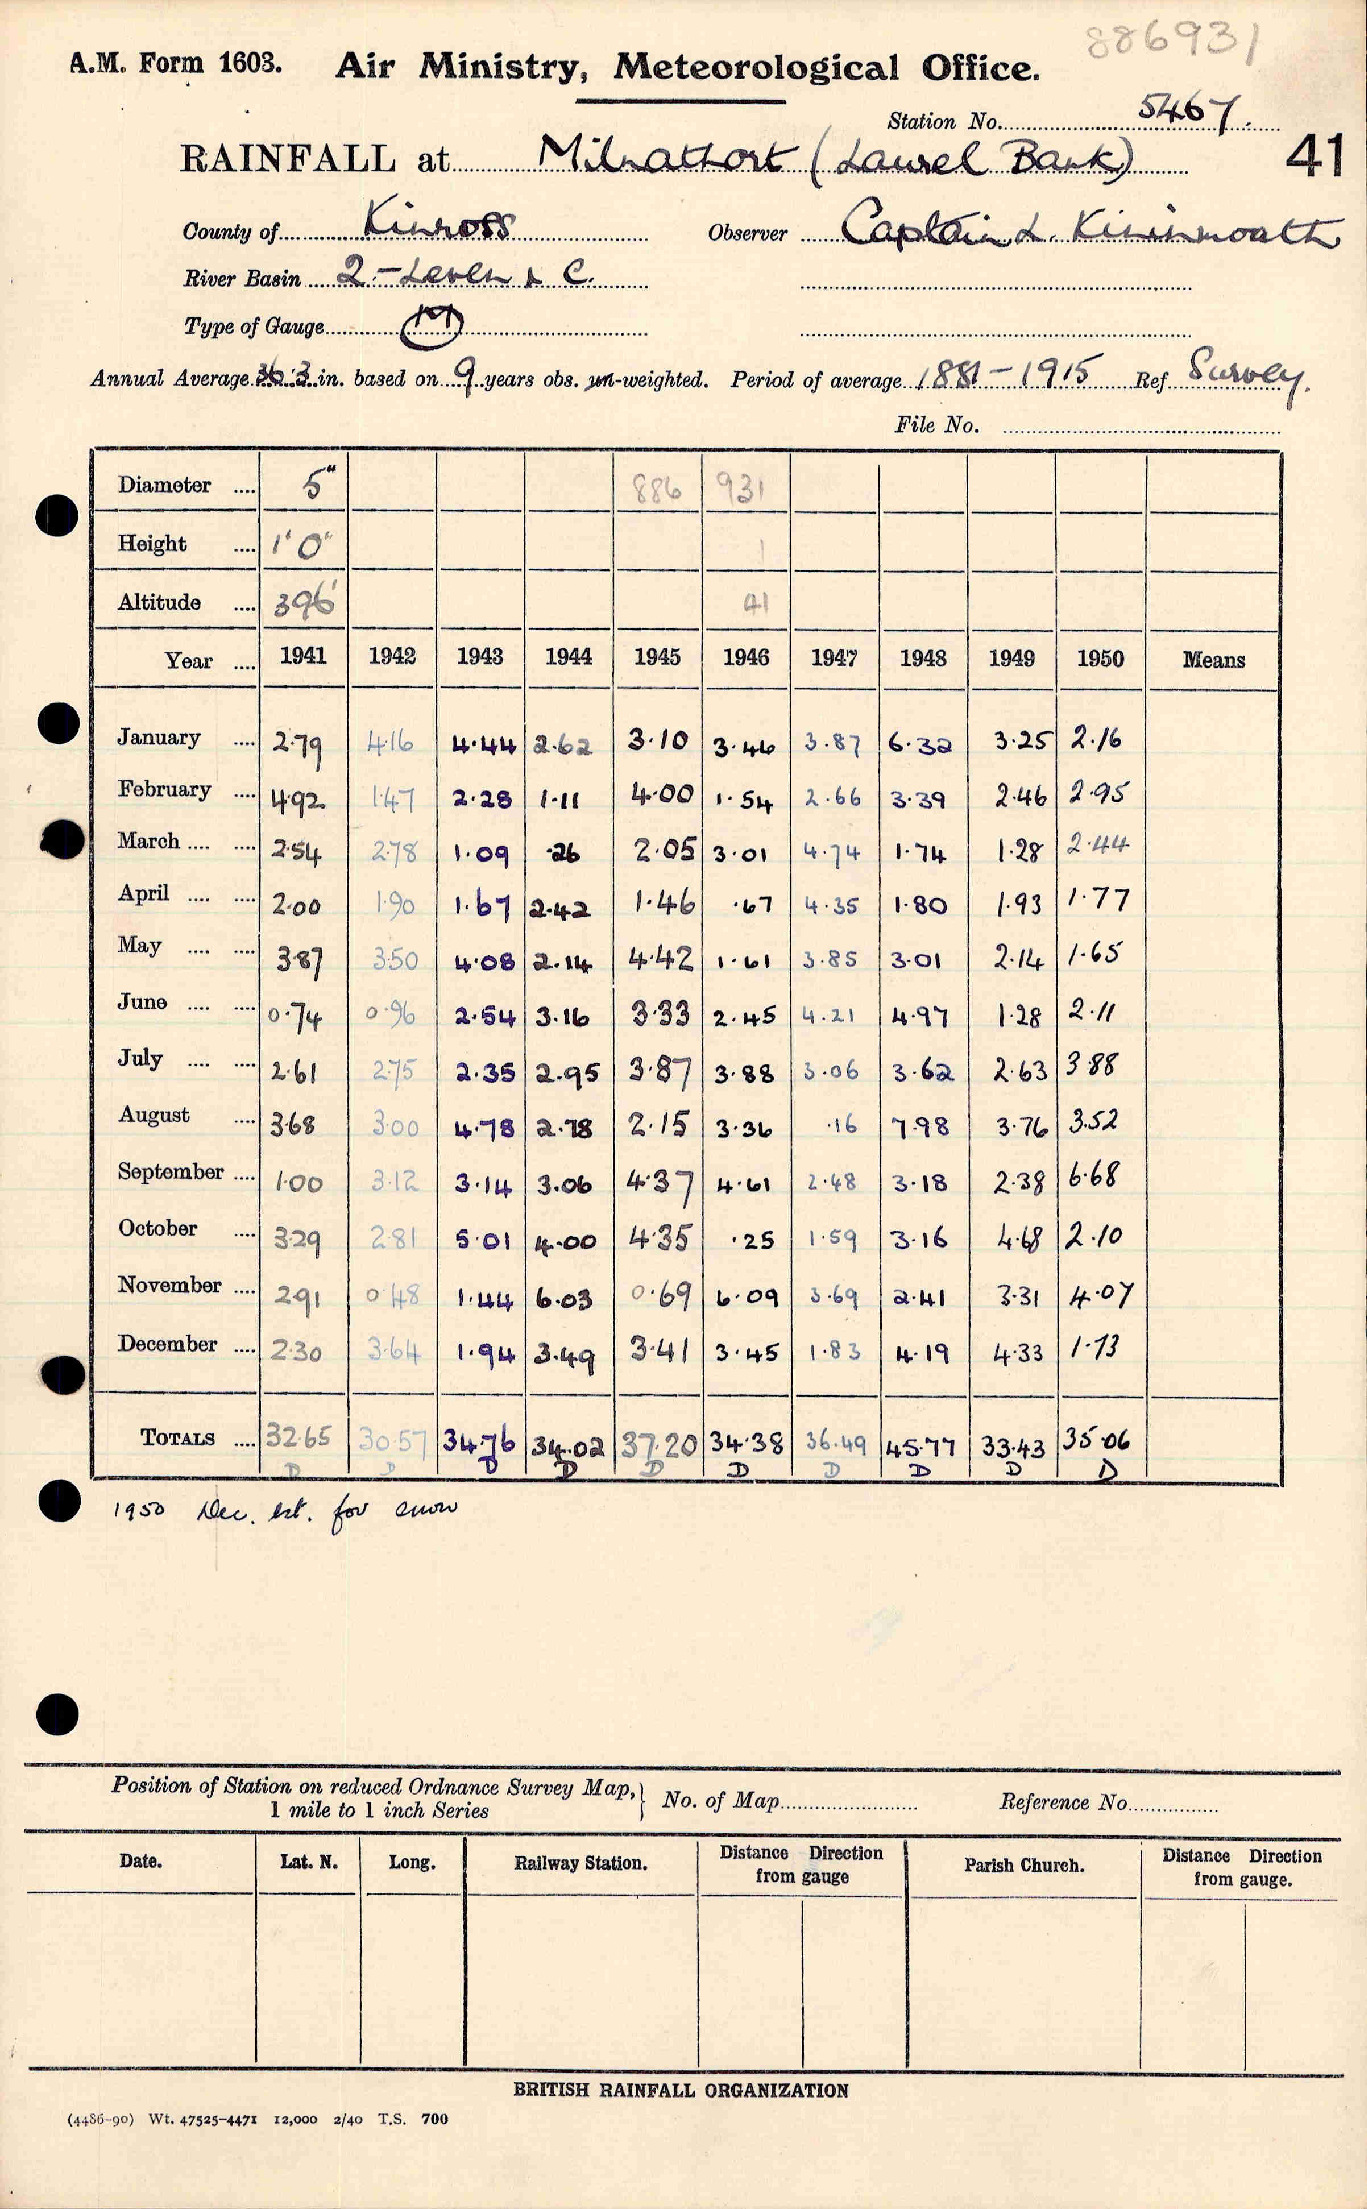 886931
A.M. Form 1603. Air Ministry, Meteorological Office.
Station No. 5467.
RAINFALL at Milnathort (Laurel Bank) 41
County of Kinross Observer Captain L. Kininmonth
River Basin 2.-Leven & C.
Type of Gauge (M)
Annual Average 36.3 in. based on 9 years obs. un-weighted. Period of average 1881-1915 Ref Survey.
File No.
Diameter .... 5" 886 931
Height .... 1'0" 1
Altitude .... 396' 41
Year .... 1941 1942 1943 1944 1945 1946 1947 1948 1949 1950 Means
January .... 2.79 4.16 4.44 2.62 3.10 3.46 3.87 6.32 3.25 2.16
February .... 4.92 1.47 2.28 1.11 4.00 1.54 2.66 3.39 2.46 2.95
March .... .... 2.54 2.78 1.09 .26 2.05 3.01 4.74 1.74 1.28 2.44
April .... .... 2.00 1.90 1.67 2.42 1.46 .67 4.35 1.80 1.93 1.77
May .... .... 3.87 3.50 4.08 2.14 4.42 1.61 3.85 3.01 2.14 1.65
June .... .... 0.74 0.96 2.54 3.16 3.33 2.45 4.21 4.97 1.28 2.11
July .... .... 2.61 2.75 2.35 2.95 3.87 3.88 3.06 3.62 2.63 3.88
August .... 3.68 3.00 4.78 2.78 2.15 3.36 .16 7.98 3.76 3.52
September .... 1.00 3.12 3.14 3.06 4.37 4.61 2.48 3.18 2.38 6.68
October .... 3.29 2.81 5.01 4.00 4.35 .25 1.59 3.16 4.68 2.10
November .... 2.91 0.48 1.44 6.03 0.69 6.09 3.69 2.41 3.31 4.07
December .... 2.30 3.64 1.94 3.49 3.41 3.45 1.83 4.19 4.33 1.73
TOTALS .... 32.65 30.57 34.76 34.02 37.20 34.38 36.49 45.77 33.43 35.06
D D D D D D D D D D
1950 Dec. est. for snow
Position of Station on reduced Ordnance Survey Map, } No. of Map Reference No.
1 mile to 1 inch Series
Date. Lat. N. Long. Railway Station. Distance Direction from gauge Parish Church. Distance Direction from gauge.
BRITISH RAINFALL ORGANIZATION
(4486-90) Wt. 47525-4471 12,000 2/40 T.S. 700